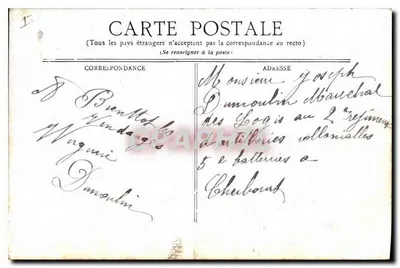 CARTE POSTALE
(Tous les pays étrangers n'acceptent pas la correspondance au recto)
(Se renseigner à la poste)
CORRESPONDANCE
A Bientot les
Vendanges
Dumoulin
ADRESSE
Monsieur Joseph
Dumoulin Marechal
des Logis au 2e regiment
d artileries collonialles
5 e batteries a
Cherbourt